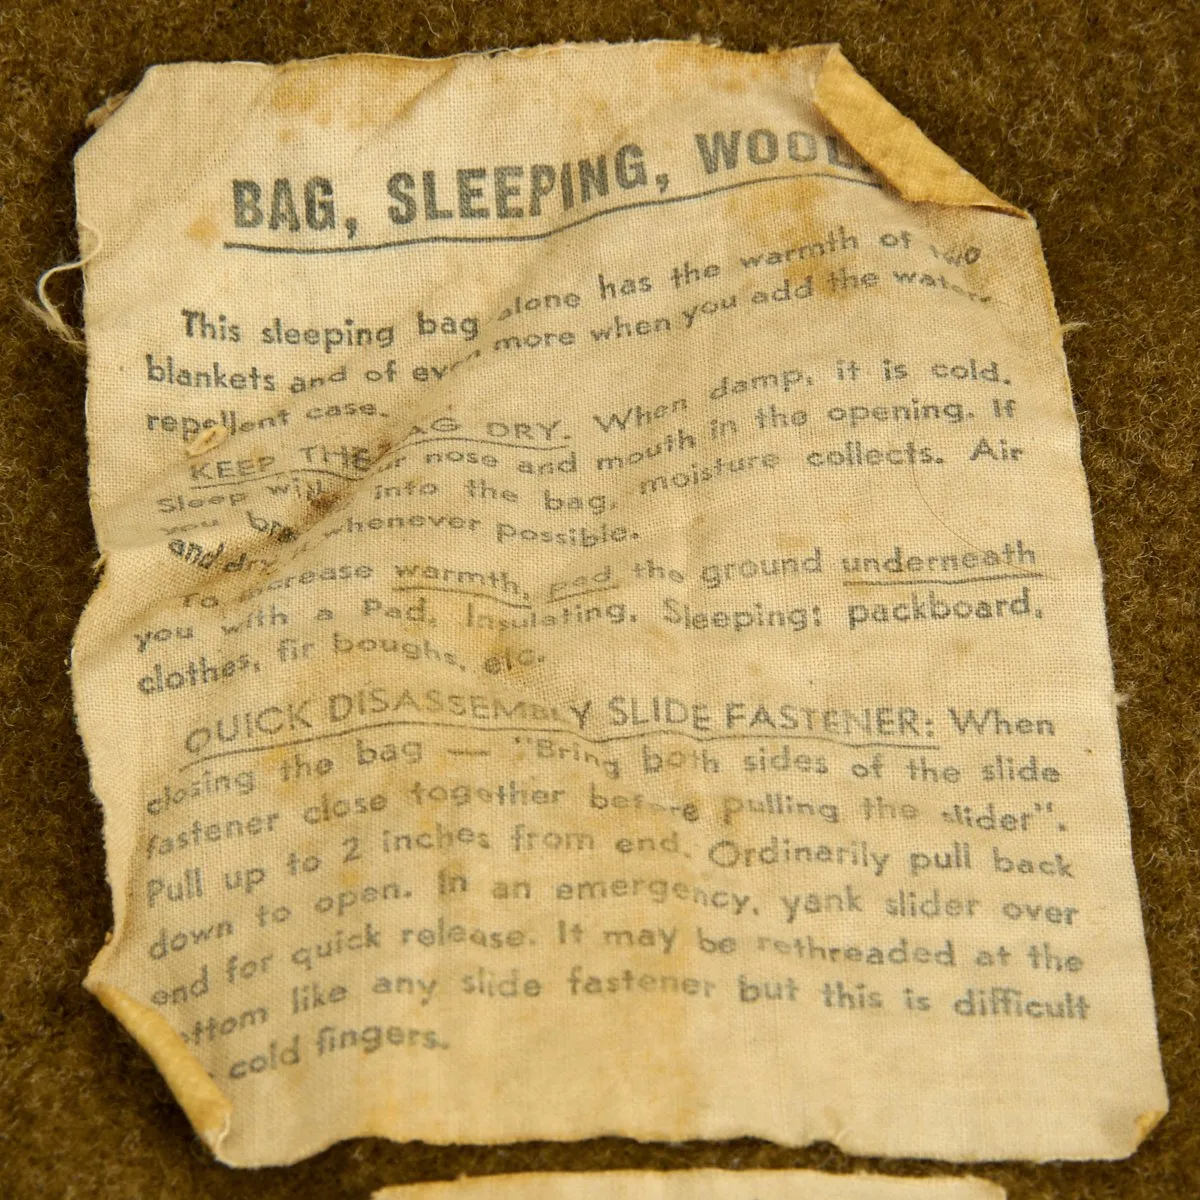 BAG, SLEEPING, WOOL
This sleeping bag alone has the warmth of two
blankets and of even more when you add the water
repellent case.
KEEP THE BAG DRY. When damp, it is cold.
Sleep with your nose and mouth in the opening. If
you bre into the bag, moisture collects. Air
and dry whenever possible.
To increase warmth, pad the ground underneath
you with a Pad, Insulating, Sleeping; packboard,
clothes, fir boughs, etc.
QUICK DISASSEMBLY SLIDE FASTENER: When
closing the bag — "Bring both sides of the slide
fastener close together before pulling the slider".
Pull up to 2 inches from end. Ordinarily pull back
down to open. In an emergency, yank slider over
end for quick release. It may be rethreaded at the
ottom like any slide fastener but this is difficult
cold fingers.